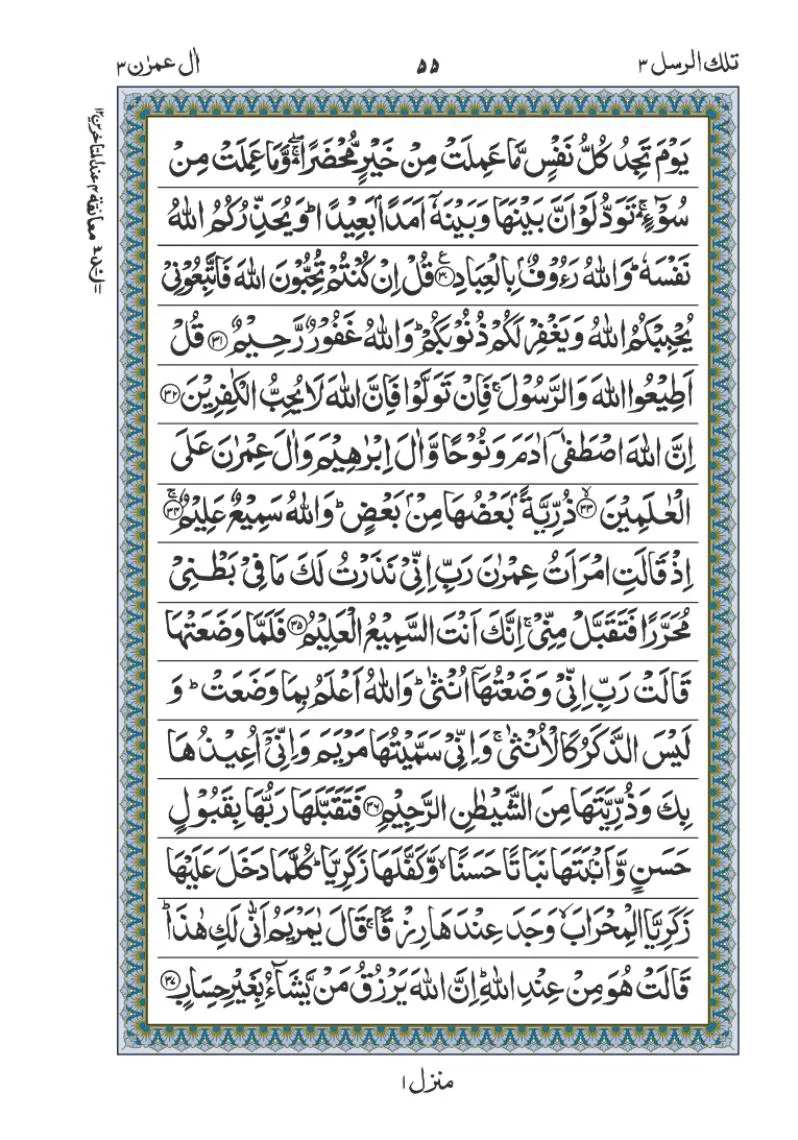 تلك الرسل ٣
٥٥
اٰل عمرٰن ٣
يَوْمَ تَجِدُ كُلُّ نَفْسٍ مَّا عَمِلَتْ مِنْ خَيْرٍ مُّحْضَرًا ۛۖۚ وَّمَا عَمِلَتْ مِنْ
سُوْٓءٍ ۛۚ تَوَدُّ لَوْ اَنَّ بَيْنَهَا وَبَيْنَهٗۤ اَمَدًاۢ بَعِيْدًا ؕ وَيُحَذِّرُكُمُ اللّٰهُ
نَفْسَهٗ ؕ وَاللّٰهُ رَءُوْفٌۢ بِالْعِبَادِ ۠﴿۳۰﴾ قُلْ اِنْ كُنْتُمْ تُحِبُّوْنَ اللّٰهَ فَاتَّبِعُوْنِيْ
يُحْبِبْكُمُ اللّٰهُ وَيَغْفِرْ لَكُمْ ذُنُوْبَكُمْ ؕ وَاللّٰهُ غَفُوْرٌ رَّحِيْمٌ ﴿۳۱﴾ قُلْ
اَطِيْعُوا اللّٰهَ وَالرَّسُوْلَ ۚ فَاِنْ تَوَلَّوْا فَاِنَّ اللّٰهَ لَا يُحِبُّ الْكٰفِرِيْنَ ﴿۳۲﴾
اِنَّ اللّٰهَ اصْطَفٰۤى اٰدَمَ وَنُوْحًا وَّاٰلَ اِبْرٰهِيْمَ وَاٰلَ عِمْرٰنَ عَلَى
الْعٰلَمِيْنَ ۙ﴿۳۳﴾ ذُرِّيَّةًۢ بَعْضُهَا مِنْۢ بَعْضٍ ؕ وَاللّٰهُ سَمِيْعٌ عَلِيْمٌ ۚ﴿۳۴﴾
اِذْ قَالَتِ امْرَاَتُ عِمْرٰنَ رَبِّ اِنِّيْ نَذَرْتُ لَكَ مَا فِيْ بَطْنِيْ
مُحَرَّرًا فَتَقَبَّلْ مِنِّيْ ۚ اِنَّكَ اَنْتَ السَّمِيْعُ الْعَلِيْمُ ﴿۳۵﴾ فَلَمَّا وَضَعَتْهَا
قَالَتْ رَبِّ اِنِّيْ وَضَعْتُهَاۤ اُنْثٰى ؕ وَاللّٰهُ اَعْلَمُ بِمَا وَضَعَتْ ؕ وَ
لَيْسَ الذَّكَرُ كَالْاُنْثٰى ۚ وَاِنِّيْ سَمَّيْتُهَا مَرْيَمَ وَاِنِّيْۤ اُعِيْذُهَا
بِكَ وَذُرِّيَّتَهَا مِنَ الشَّيْطٰنِ الرَّجِيْمِ ﴿۳۶﴾ فَتَقَبَّلَهَا رَبُّهَا بِقَبُوْلٍ
حَسَنٍ وَّاَنْۢبَتَهَا نَبَاتًا حَسَنًا ۙ وَّكَفَّلَهَا زَكَرِيَّا ؕ كُلَّمَا دَخَلَ عَلَيْهَا
زَكَرِيَّا الْمِحْرَابَ ۙ وَجَدَ عِنْدَهَا رِزْقًا ۚ قَالَ يٰمَرْيَمُ اَنّٰى لَكِ هٰذَا ؕ
قَالَتْ هُوَ مِنْ عِنْدِ اللّٰهِ ؕ اِنَّ اللّٰهَ يَرْزُقُ مَنْ يَّشَآءُ بِغَيْرِ حِسَابٍ ﴿۳۷﴾
منزل ١